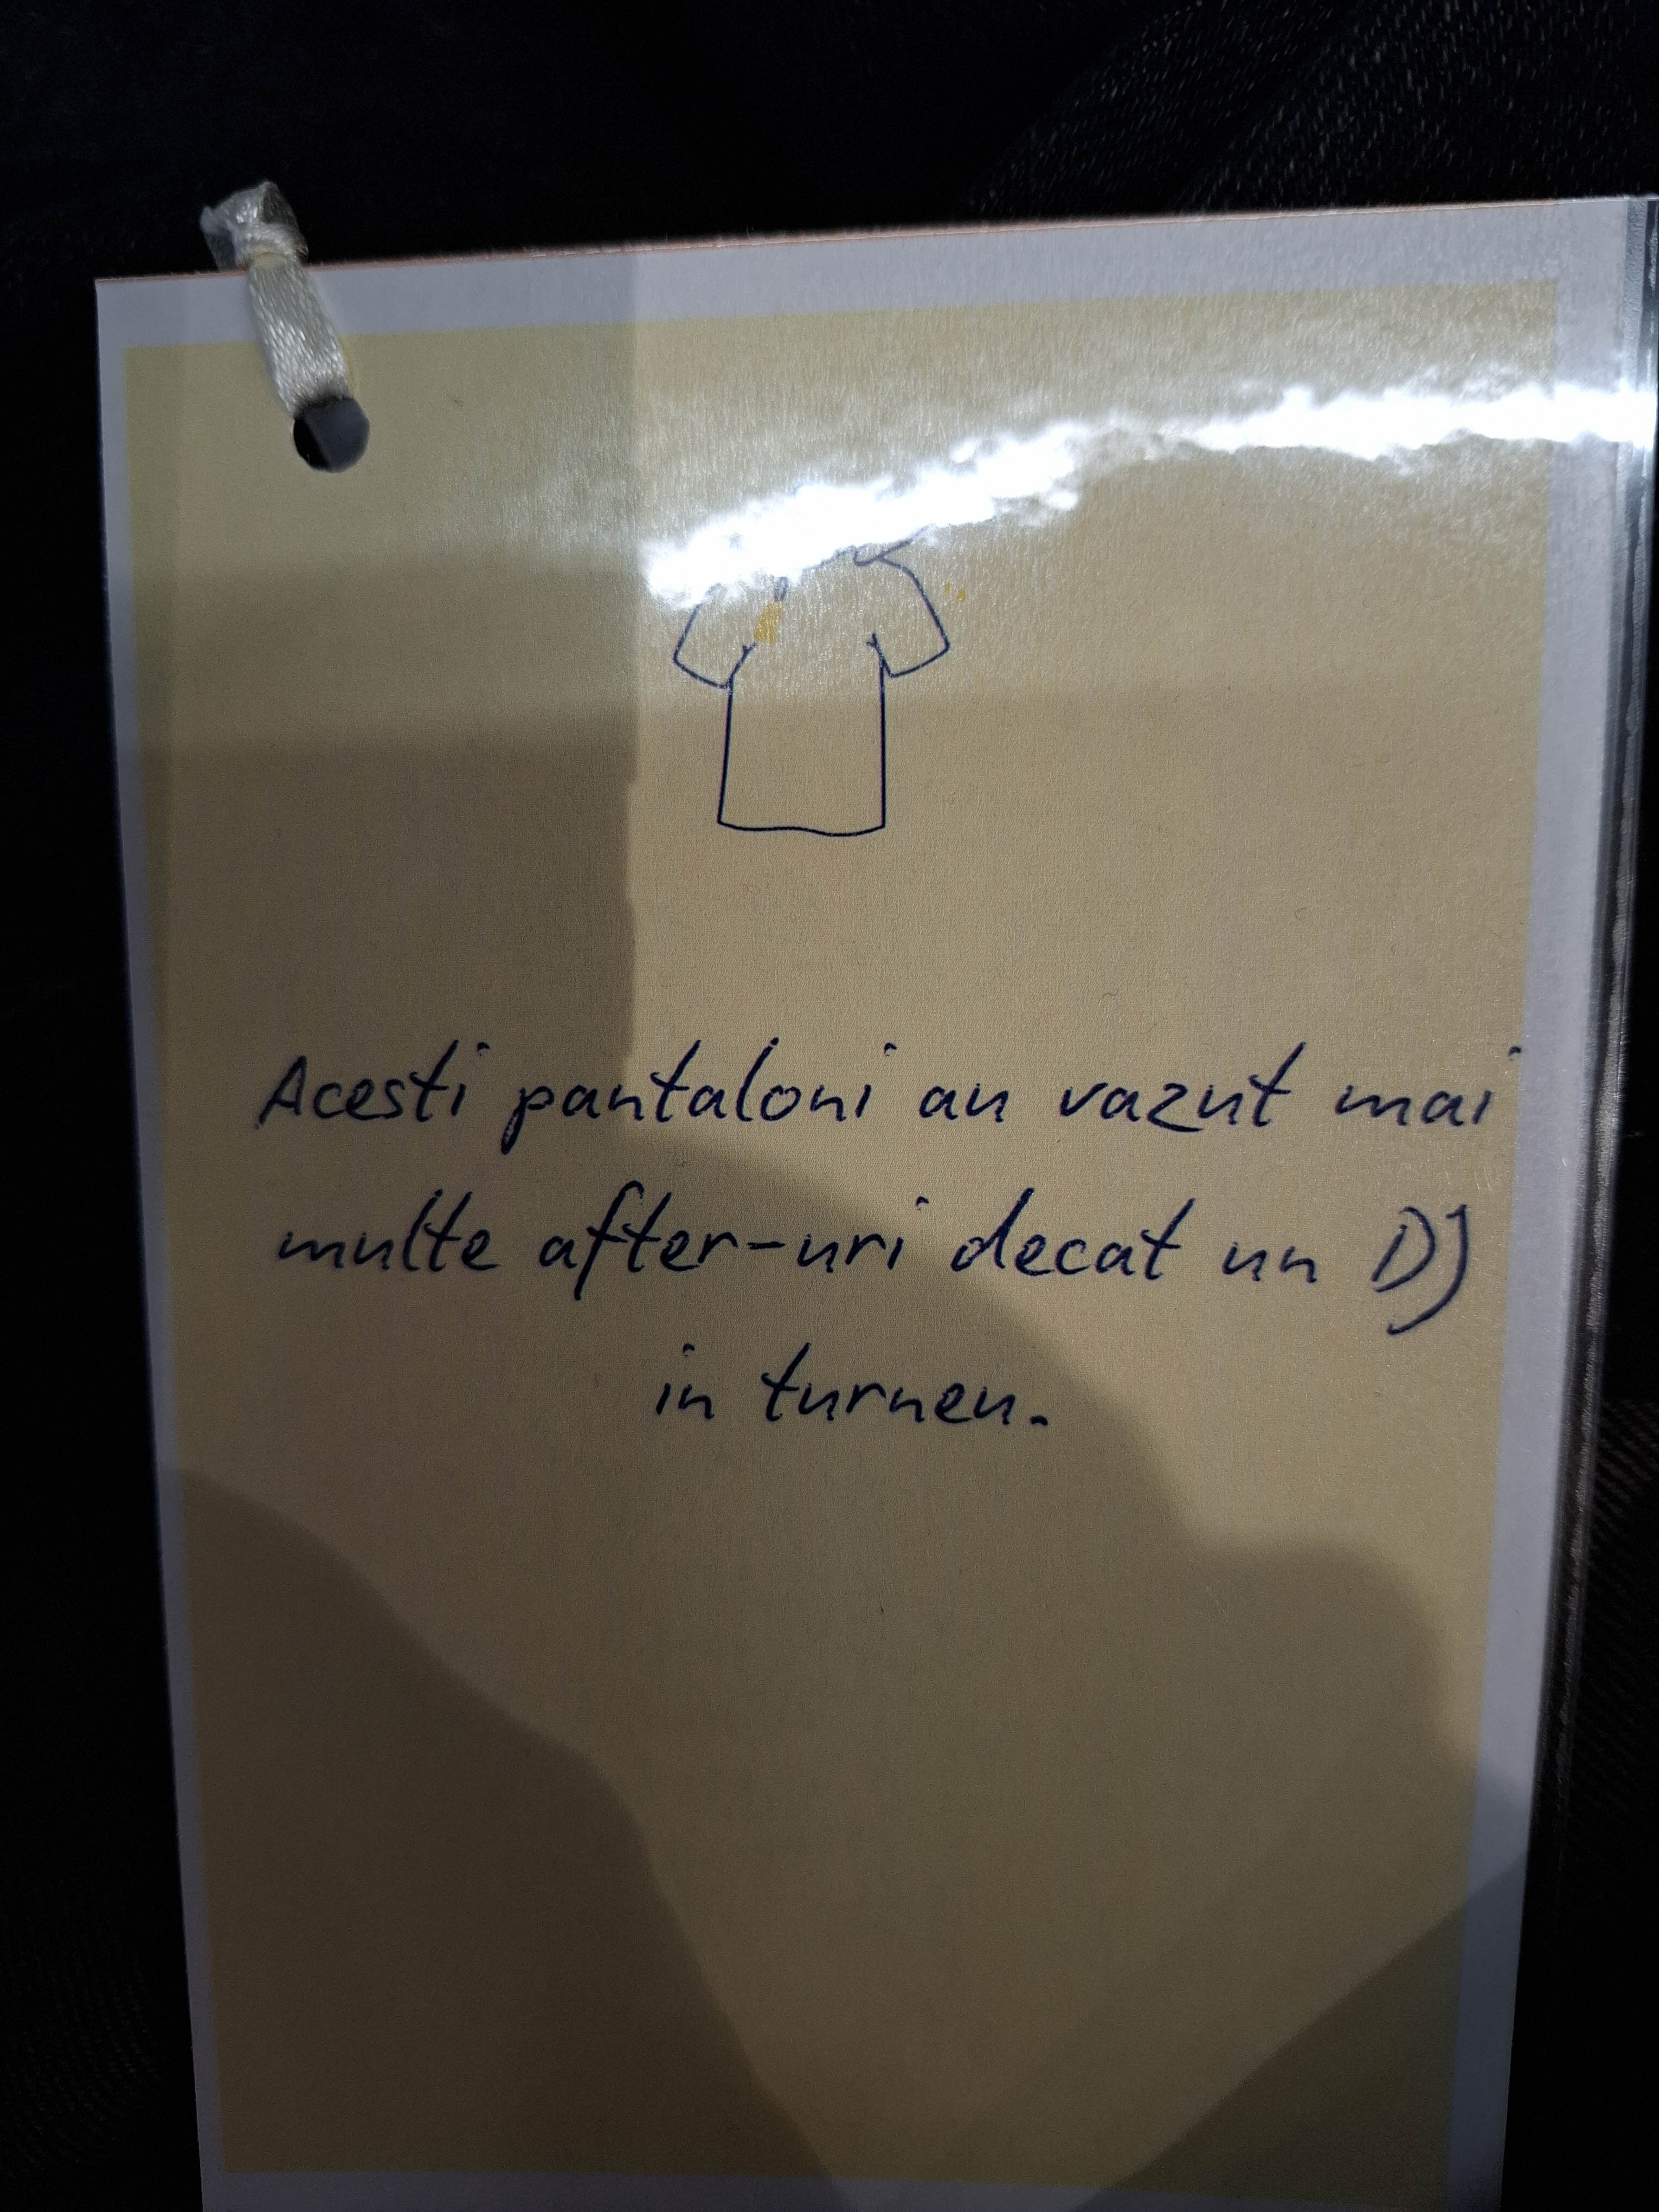 Acesti pantaloni au vazut mai
multe after-uri decat un DJ
in turneu.